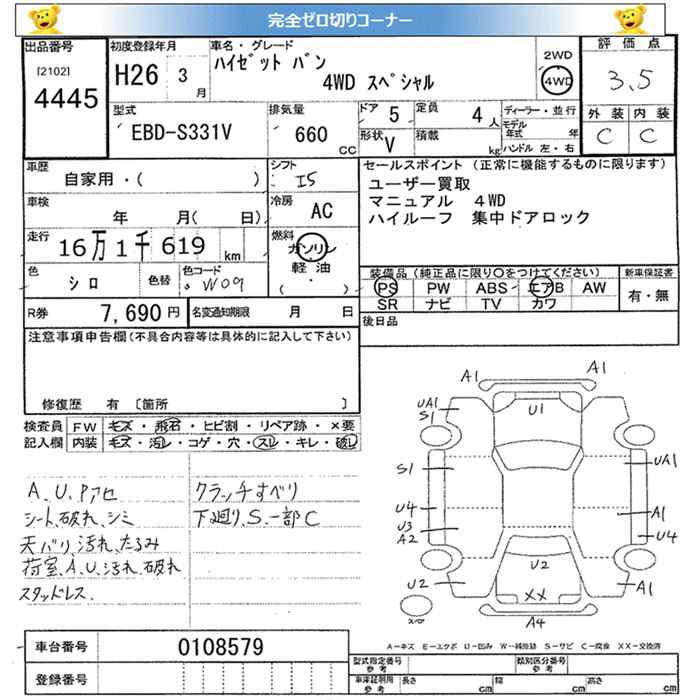 完全ゼロ切りコーナー
出品番号
[2102]
4445
初度登録年月
H26 3
月
車名・グレード
ハイゼット バン
4WD スペシャル
2WD
4WD
評価点
3.5
外装 内装
C C
型式
EBD-S331V
排気量
660
CC
ドア
5
形状
V
定員
4
人
積載
kg
ディーラー・並行
モデル年式 年
ハンドル 左・右
車歴
自家用・( )
シフト
I5
車検
年 月( 日)
冷房
AC
走行
16万1千619 km
燃料
ガソリン
軽油
( ・ )
色
シロ
色替
色コード
W09
R券
7,690円
名変通知期限 月 日
セールスポイント (正常に機能するものに限ります)
ユーザー買取
マニュアル 4WD
ハイルーフ 集中ドアロック
装備品(純正品に限り○をつけてください)
PS PW ABS エアB AW
SR ナビ TV カワ
新車保証書
有・無
後日品
注意事項申告欄(不具合内容等は具体的に記入して下さい)
修復歴 有 〔箇所 〕
検査員記入欄
FW キズ・飛石・ヒビ割・リペア跡・×要
内装 キズ・汚レ・コゲ・穴・スレ・キレ・破レ
A、U、Pアセ
シート、破れ、シミ
天バリ、汚れ、たるみ
荷室、A、U、汚れ、破れ
スタッドレス、
クラッチすべり
下廻り、S、一部C
A1
A1
UA1
S1
U1
S1
UA1
U4
U3
A2
A1
U4
U2
U2
XX
A1
A4
スペア
A－キズ E－エクボ U－凹み W－補修跡 S－サビ C－腐食 XX－交換済
車台番号
0108579
登録番号
型式指定番号
参考
類別区分番号
参考
車庫証明用
参考
長さ cm
幅 cm
高さ cm